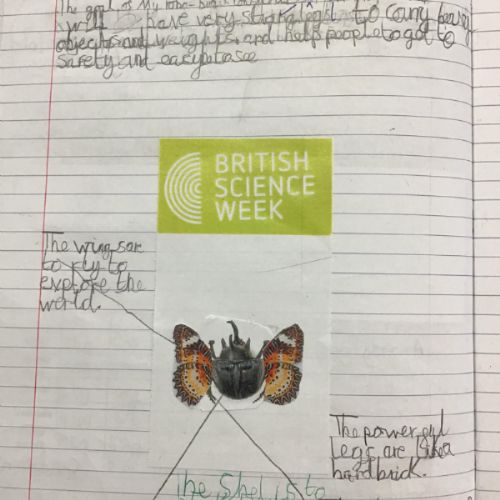 The goal of My
will have very strong legs to carry heavy
objects and weights, and help people to got to
safety and easy
BRITISH
SCIENCE
WEEK
The wings are
to fly to
explore the
world.
The powerful
Legs are like a
hard brick.
The Shel is to